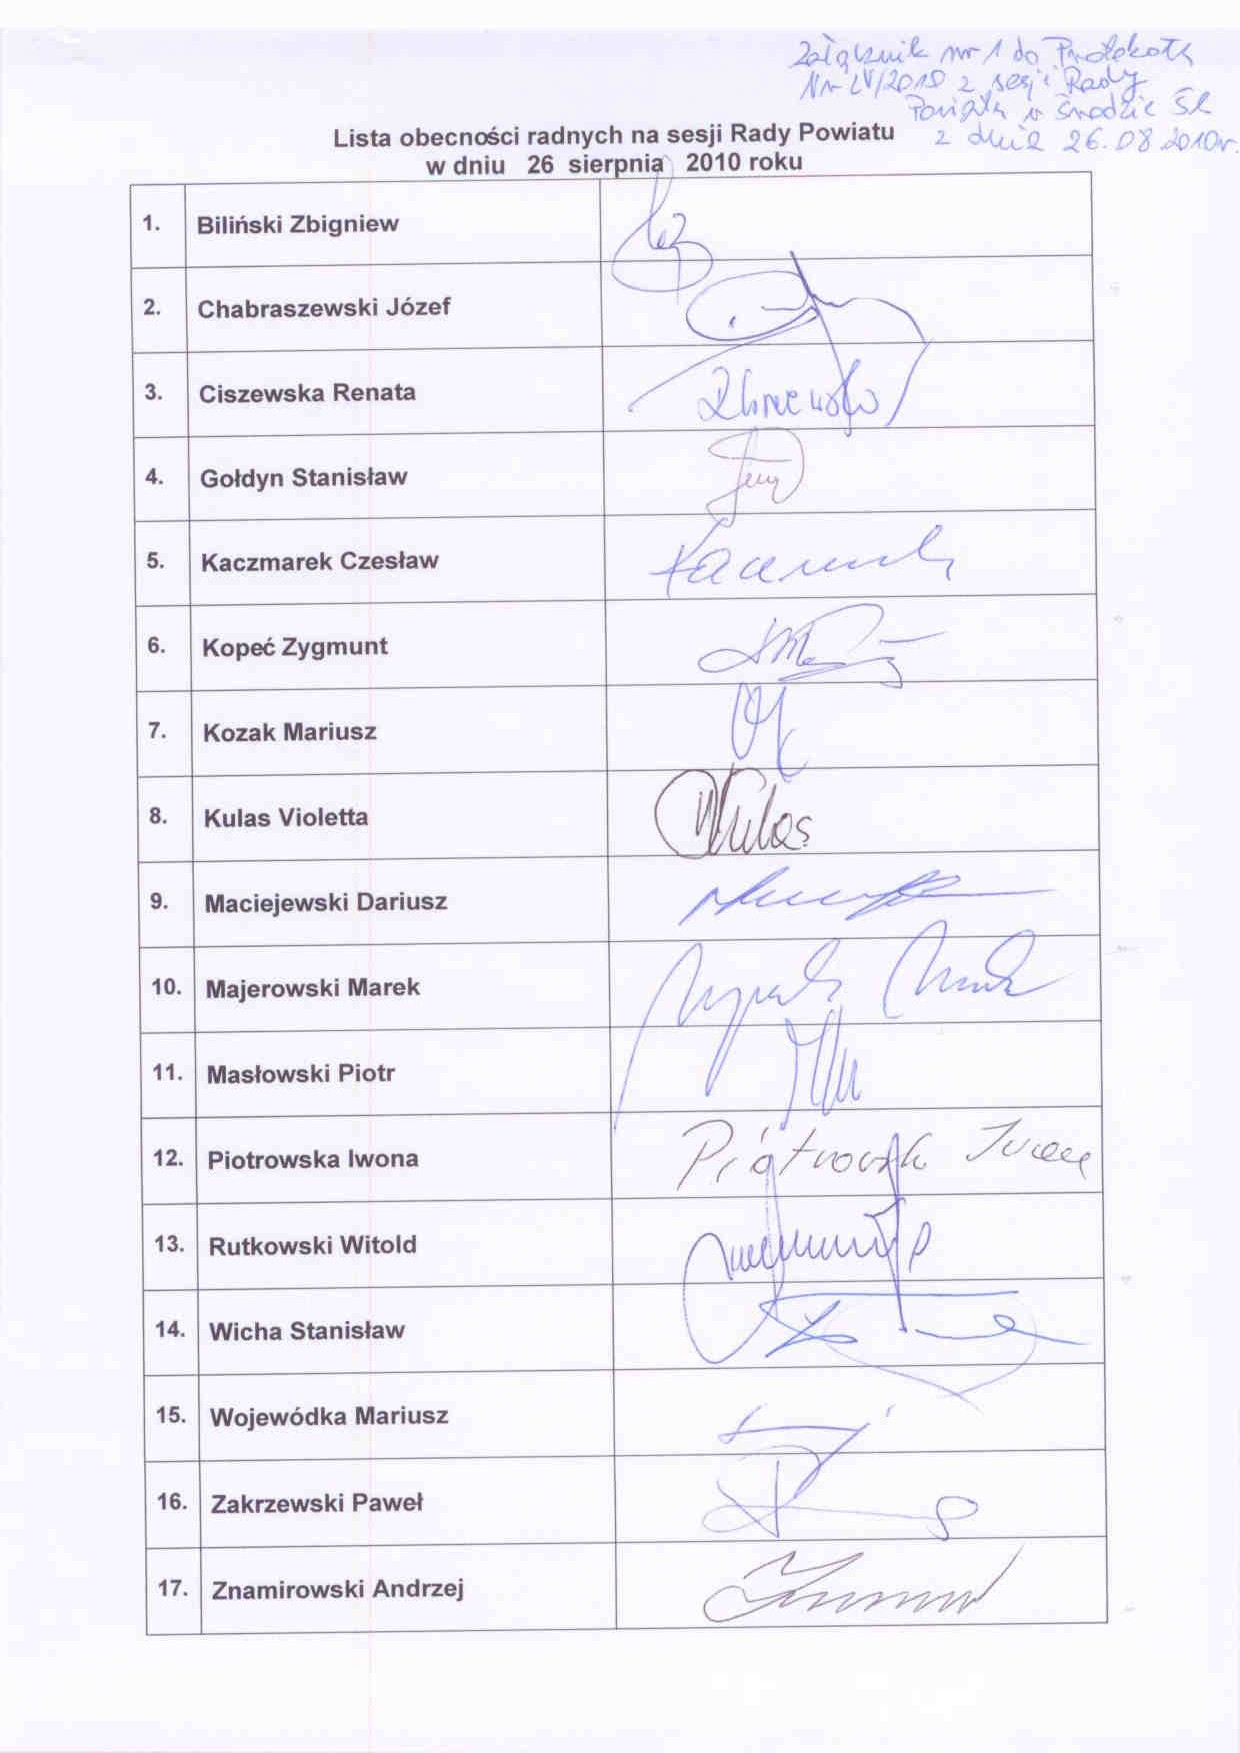 Załącznik nr 1 do Protokołu
Nr LV/2010 z sesji Rady
Powiatu w Środzie Śl
z dnia 26.08 2010r.
Lista obecności radnych na sesji Rady Powiatu
w dniu 26 sierpnia 2010 roku
1. Biliński Zbigniew
2. Chabraszewski Józef
3. Ciszewska Renata
4. Gołdyn Stanisław
5. Kaczmarek Czesław
6. Kopeć Zygmunt
7. Kozak Mariusz
8. Kulas Violetta
9. Maciejewski Dariusz
10. Majerowski Marek
11. Masłowski Piotr
12. Piotrowska Iwona Piotrowska Iwona
13. Rutkowski Witold
14. Wicha Stanisław
15. Wojewódka Mariusz
16. Zakrzewski Paweł
17. Znamirowski Andrzej